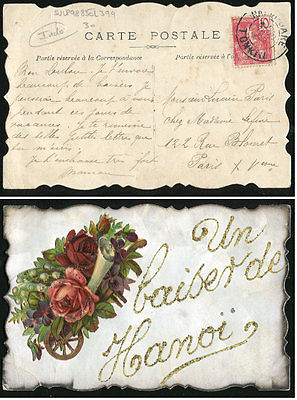 Indo
CARTE POSTALE
Partie réservée à la Correspondance
Partie réservée à l'adresse
Mon Loulou. Je t'envoie
beaucoup de baisers. Je
pense beaucoup à vous
pendant ces jours de
vacances. Je te remercie
des petites lettres que
tu m'écris.
Je t'embrasse très fort
maman
Monsieur Paris
chez Madame
132 Rue Blomet
Paris
Un
baiser de
Hanoï